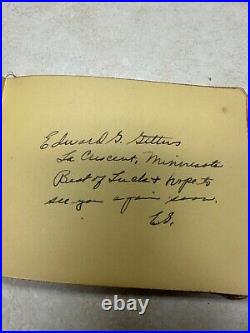 Edward G. Gittens
La Crescent, Minnesota
Best of Luck & hope to
see you again soon.